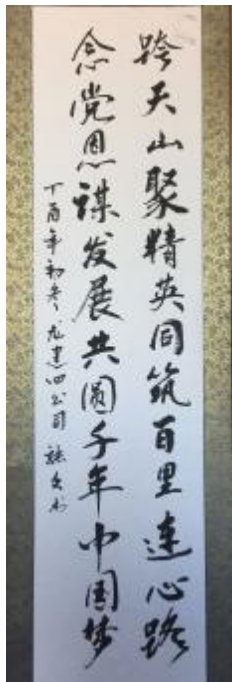 跨天山聚精英同筑百里连心路
念党恩谋发展共圆千年中国梦
丁酉年初冬龙建四公司